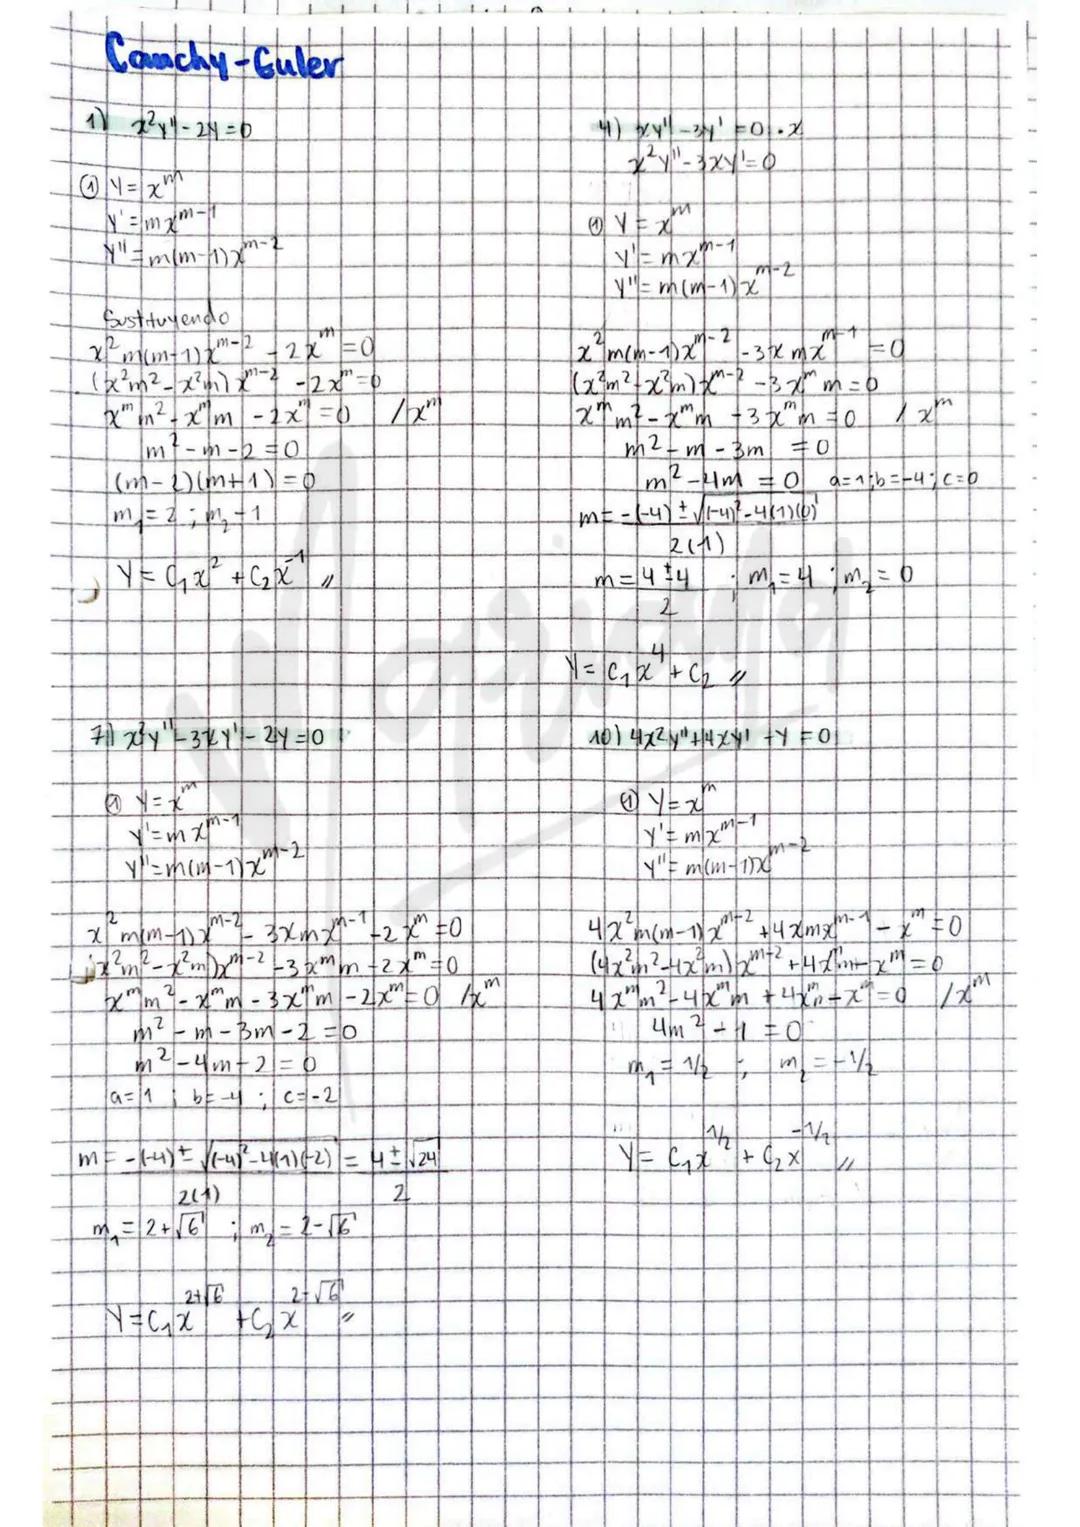 Cauchy-Euler
1) x²y''-2y=0
① y = x^m
y' = mx^{m-1}
y'' = m(m-1)x^{m-2}
Sustituyendo
x² m(m-1)x^{m-2} - 2x^m = 0
(x²m² - x²m) x^{m-2} - 2x^m = 0
x^m m² - x^m m - 2x^m = 0 /x^m
m² - m - 2 = 0
(m-2)(m+1) = 0
m₁ = 2 ; m₂ -1
y = C₁x² + C₂x^{-1} //
4) xy'' - 3y' = 0 ·x
x²y'' - 3xy' = 0
① y = x^m
y' = mx^{m-1}
y'' = m(m-1)x^{m-2}
x² m(m-1)x^{m-2} - 3x mx^{m-1} = 0
(x²m² - x²m) x^{m-2} - 3x^m m = 0
x^m m² - x^m m - 3x^m m = 0 / x^m
m² - m - 3m = 0
m² - 4m = 0 a=1; b=-4; c=0
m = -(-4) ± √(-4)²-4(1)(0)
2(1)
m = 4 ± 4 ; m₁ = 4 ; m₂ = 0
2
y = C₁x⁴ + C₂ //
7) x²y'' - 3xy' - 2y = 0
① y = x^m
y' = mx^{m-1}
y'' = m(m-1)x^{m-2}
x² m(m-1)x^{m-2} - 3xmx^{m-1} - 2x^m = 0
(x²m² - x²m)x^{m-2} - 3x^m m - 2x^m = 0
x^m m² - x^m m - 3x^m m - 2x^m = 0 /x^m
m² - m - 3m - 2 = 0
m² - 4m - 2 = 0
a=1 ; b=-4 ; c=-2
m = -(-4) ± √(-4)²-4(1)(-2) = 4 ± √24
2(1) 2
m₁ = 2+√6 ; m₂ = 2-√6
y = C₁x^{2+√6} + C₂x^{2-√6} //
10) 4x²y'' + 4xy' - y = 0
① y = x^m
y' = mx^{m-1}
y'' = m(m-1)x^{m-2}
4x² m(m-1)x^{m-2} + 4xmx^{m-1} - x^m = 0
(4x²m² - 4x²m)x^{m-2} + 4x^m m - x^m = 0
4x^m m² - 4x^m m + 4x^m m - x^m = 0 /x^m
4m² - 1 = 0
m₁ = 1/2 ; m₂ = -1/2
y = C₁x^{1/2} + C₂x^{-1/2} //
Mariana